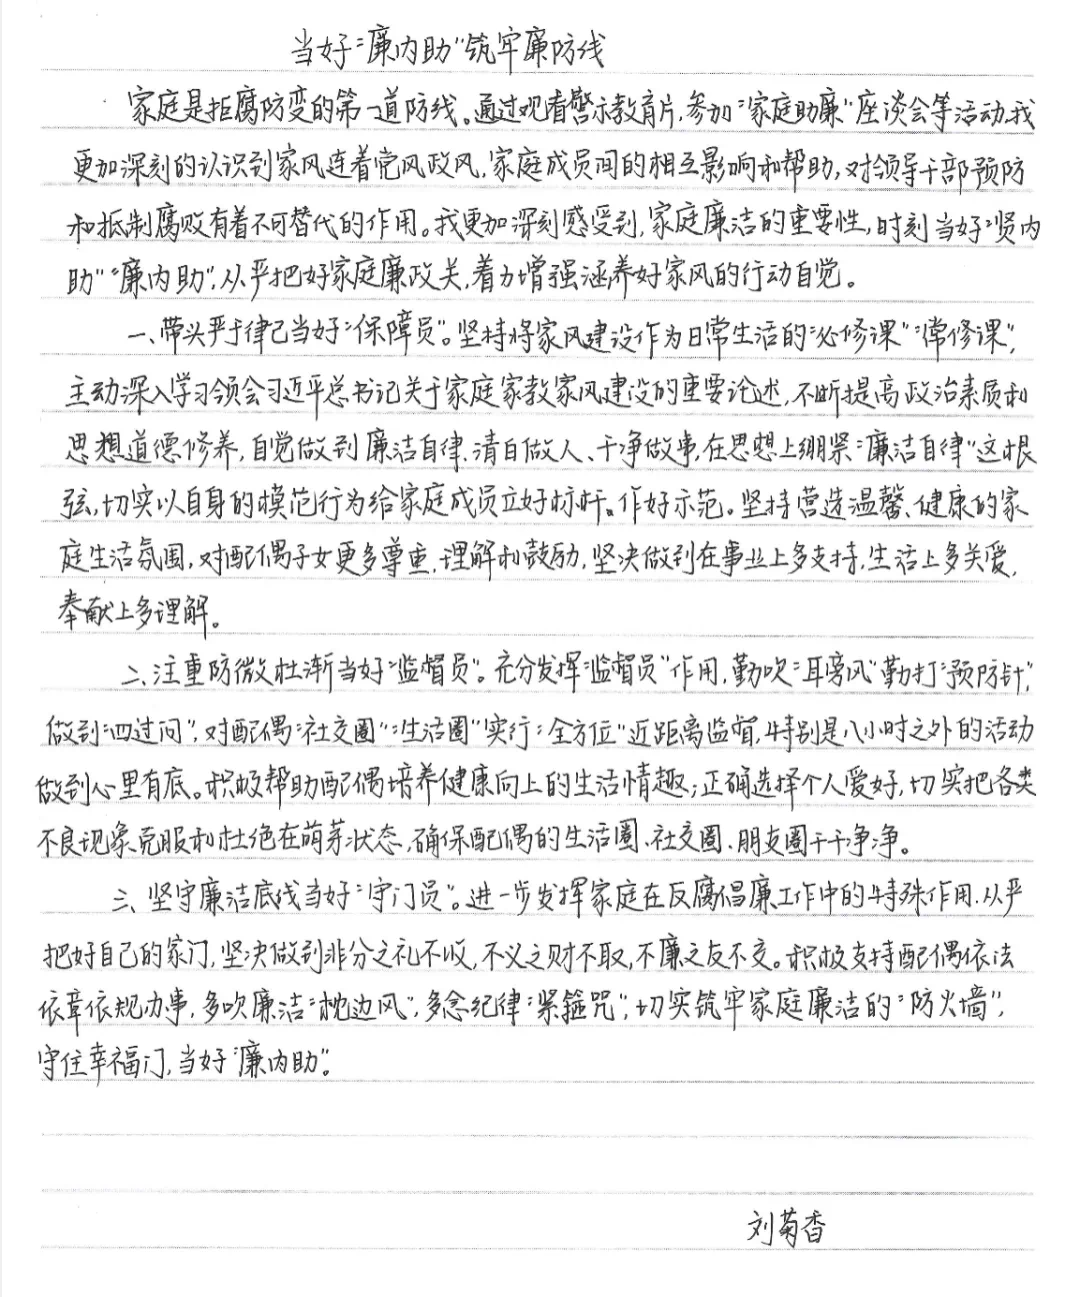 当好“廉内助”筑牢廉防线
家庭是拒腐防变的第一道防线。通过观看警示教育片,参加“家庭助廉”座谈会等活动,我
更加深刻的认识到家风连着党风政风,家庭成员间的相互影响和帮助,对领导干部预防
和抵制腐败有着不可替代的作用。我更加深刻感受到,家庭廉洁的重要性,时刻当好“贤内
助”“廉内助”,从严把好家庭廉政关,着力增强涵养好家风的行动自觉。
一、带头严于律己当好“保障员”。坚持将家风建设作为日常生活的“必修课”“常修课”,
主动深入学习领会习近平总书记关于家庭家教家风建设的重要论述,不断提高政治素质和
思想道德修养,自觉做到廉洁自律、清白做人、干净做事,在思想上绷紧“廉洁自律”这根
弦,切实以自身的模范行为给家庭成员立好标杆。作好示范。坚持营造温馨、健康的家
庭生活氛围,对配偶子女更多尊重、理解和鼓励,坚决做到在事业上多支持,生活上多关爱,
奉献上多理解。
二、注重防微杜渐当好“监督员”。充分发挥“监督员”作用,勤吹“耳旁风”勤打“预防针”,
做到“四过问”,对配偶“社交圈”“生活圈”实行“全方位”近距离监督,特别是八小时之外的活动
做到心里有底。积极帮助配偶培养健康向上的生活情趣;正确选择个人爱好,切实把各类
不良现象克服和杜绝在萌芽状态,确保配偶的生活圈、社交圈、朋友圈干干净净。
三、坚守廉洁底线当好“守门员”。进一步发挥家庭在反腐倡廉工作中的特殊作用,从严
把好自己的家门,坚决做到非分之礼不收,不义之财不取,不廉之友不交。积极支持配偶依法
依章依规办事,多吹廉洁“枕边风”,多念纪律“紧箍咒”,切实筑牢家庭廉洁的“防火墙”,
守住幸福门,当好“廉内助”。
刘菊香